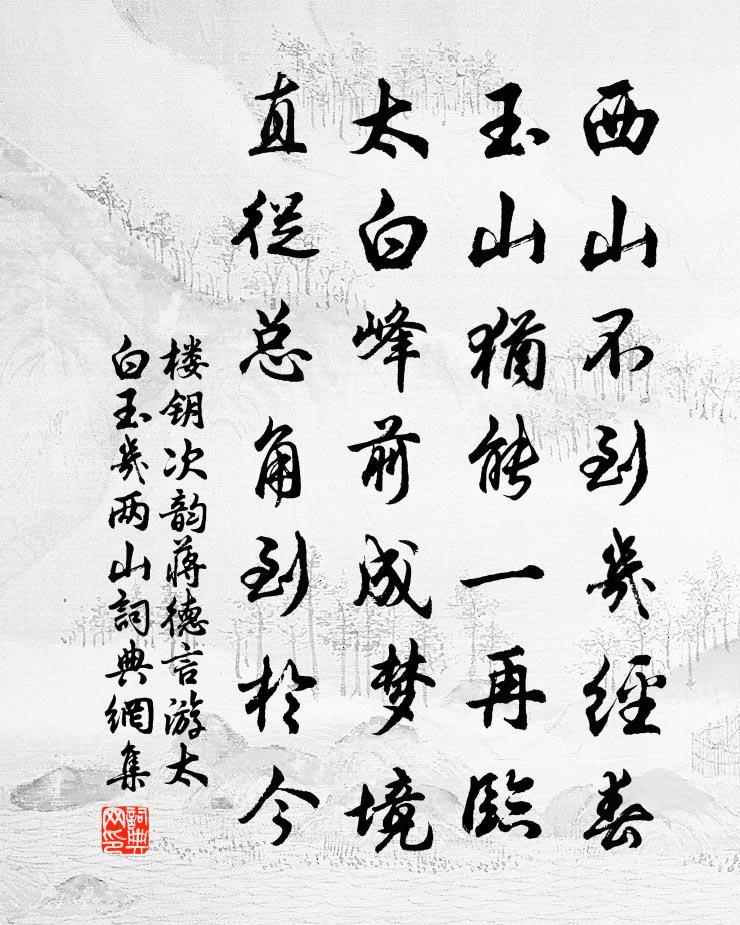 西山不到几經春
玉山猶能一再臨
太白峰前成梦境
直從总角到於今
楼钥次韵蒋德言游太
白玉几两山詞典網集
詞典
网印